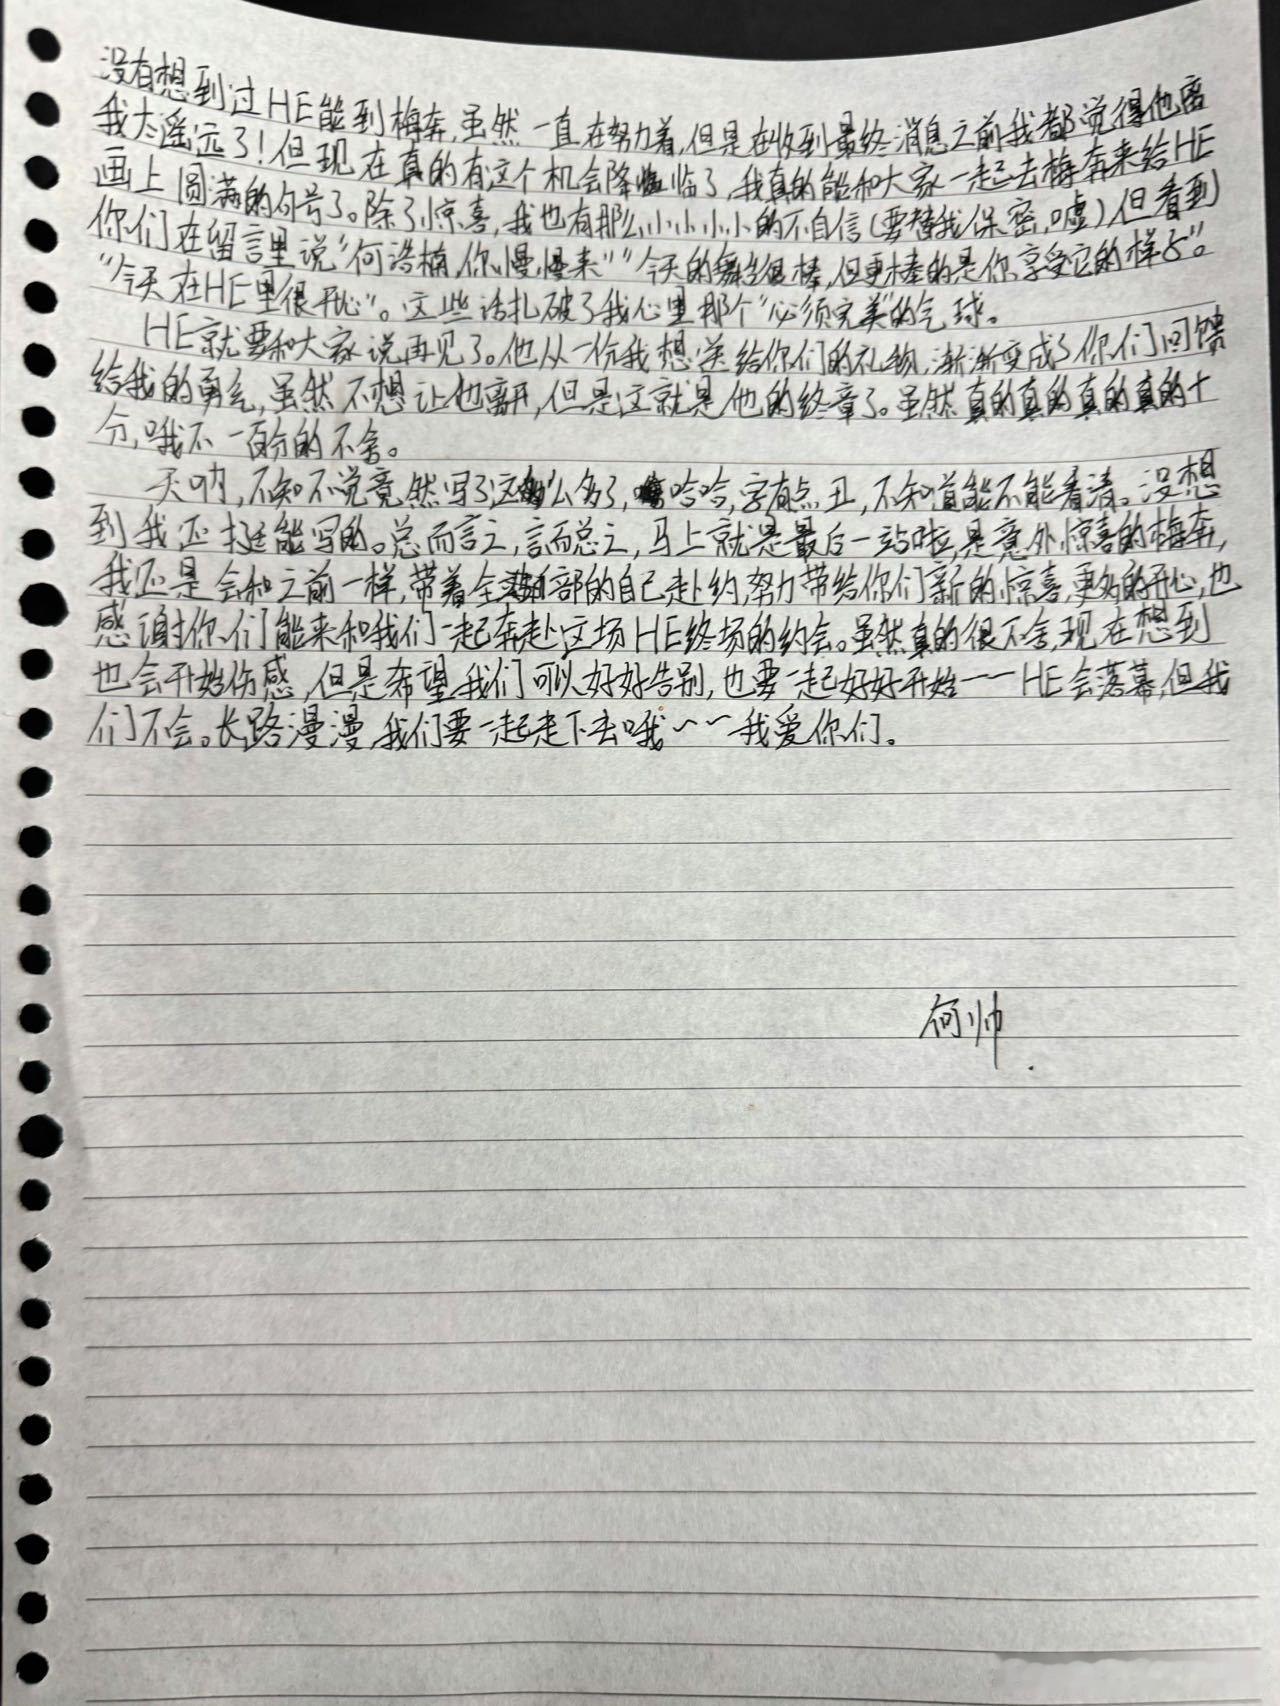 没有想到过HE能到梅奔,虽然一直在努力着,但是在收到最终消息之前我都觉得他离
我太遥远了!但现在真的有这个机会降临了,我真的能和大家一起去梅奔来给HE
画上圆满的句号了。除了惊喜,我也有那么小小小小的不自信(要替我保密,嘘),但看到
你们在留言里说“何浩楠,你慢慢来”“今天的舞台很棒,但更棒的是你享受它的样子”。
“今天在HE里很开心”。这些话扎破了我心里那个“必须完美”的气球。
HE就要和大家说再见了。他从一份我想送给你们的礼物,渐渐变成了你们回馈
给我的勇气,虽然不想让他离开,但是这就是他的终章了。虽然真的真的真的真的十
分,哦不一百分的不舍。
天呐,不知不觉竟然写了这么多了,哈哈,字有点丑,不知道能不能看清。没想
到我还挺能写的。总而言之,言而总之,马上就是最后一站啦,是意外惊喜的梅奔,
我还是会和之前一样,带着全部的自己赴约,努力带给你们新的惊喜,更多的开心,也
感谢你们能来和我们一起奔赴这场HE终场的约会。虽然真的很不舍,现在想到
也会开始伤感,但是希望我们可以好好告别,也要一起好好开始——HE会落幕,但我
们不会。长路漫漫,我们要一起走下去哦~~我爱你们。
何帅.